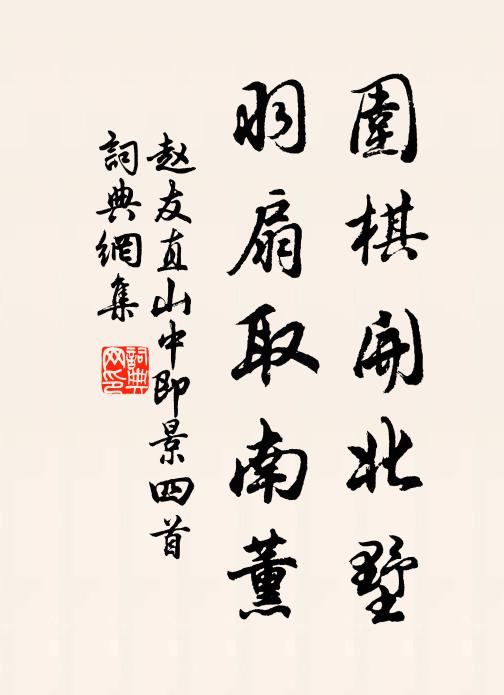 圍棋開北墅
羽扇取南薰
赵友直山中即景四首
詞典網集
詞典网印